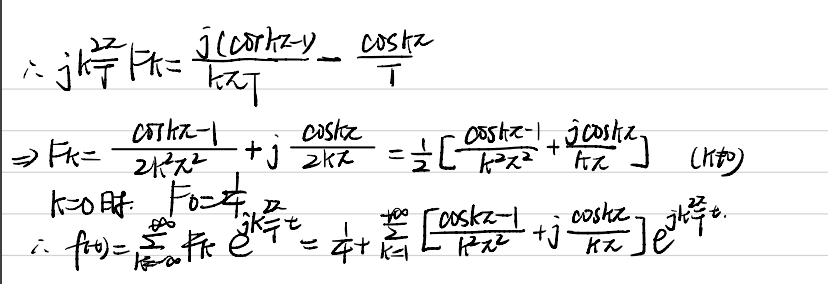 ∴ jk 2π/T Fk = j(coskπ-1)/kπT - coskπ/T
⇒ Fk = coskπ-1/2k²π² + j coskπ/2kπ = 1/2 [coskπ-1/k²π² + jcoskπ/kπ] (k≠0)
k=0时. F0=1/4
∴ f(t) = Σ_{k=-∞}^{+∞} Fk e^{jk 2π/T t} = 1/4 + Σ_{k=1}^{+∞} [coskπ-1/k²π² + j coskπ/kπ] e^{jk 2π/T t}.